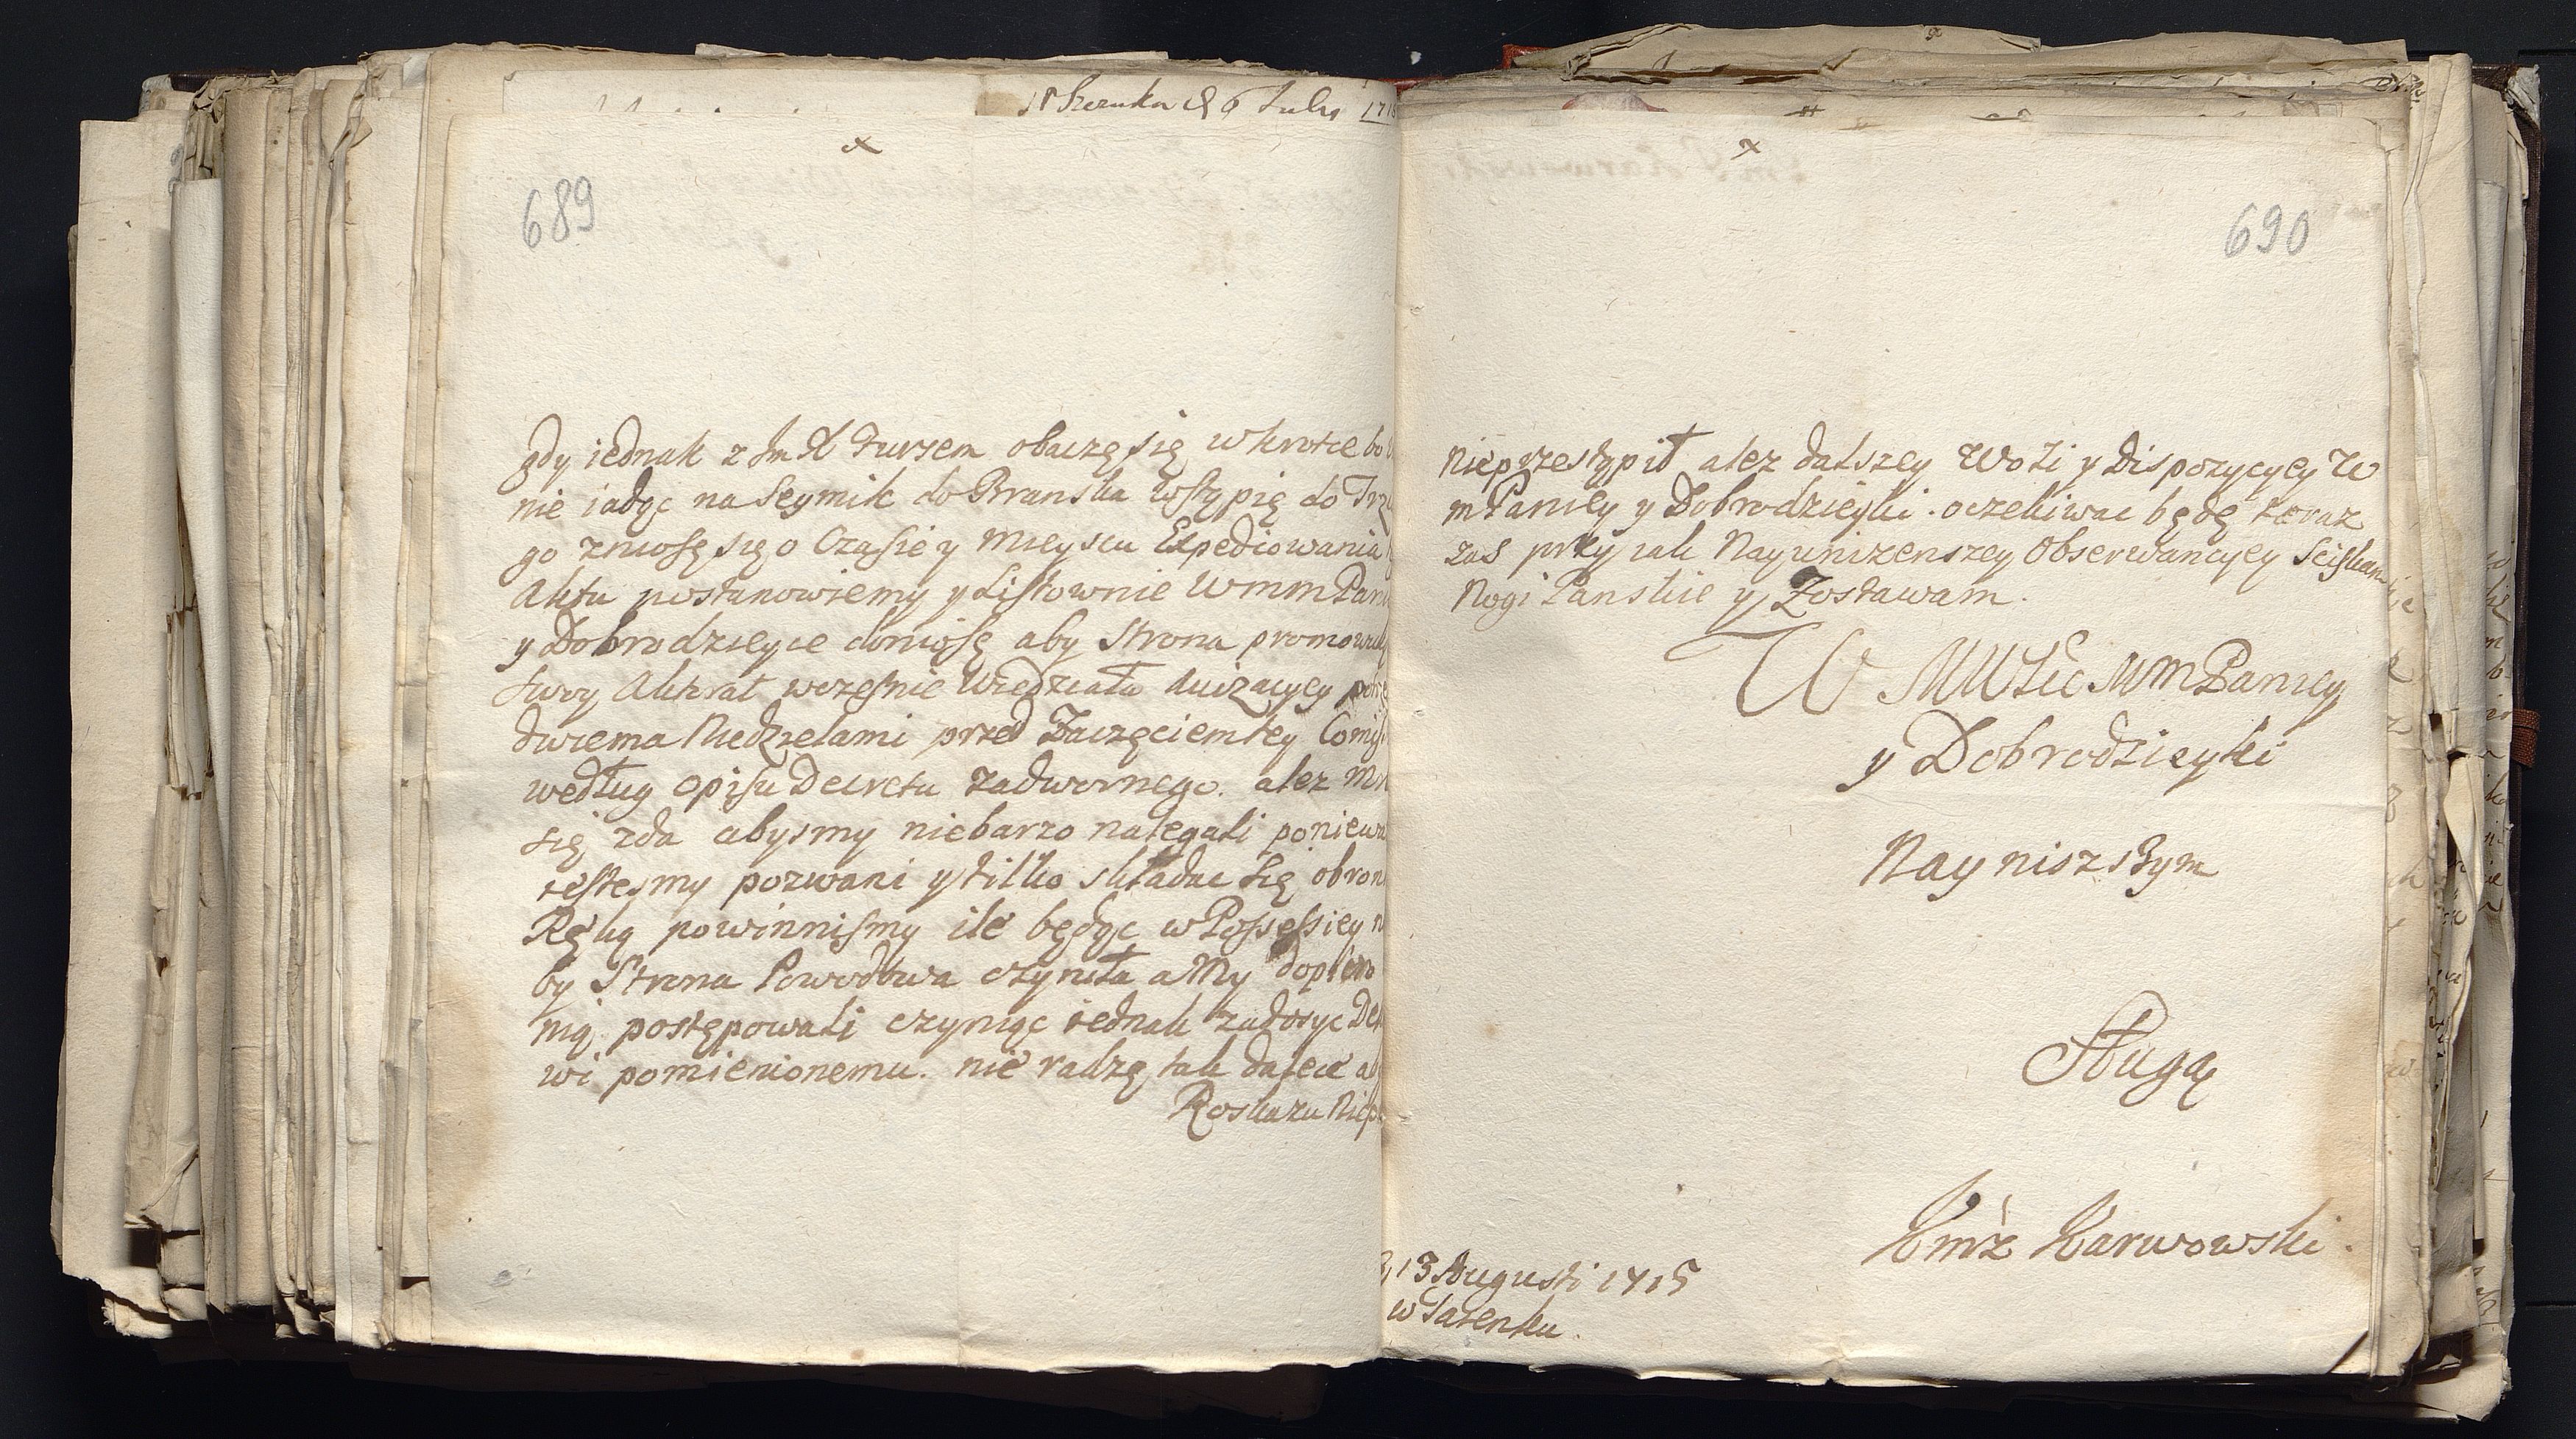 Szczuka d 6 Julij 171
689
gdy iednak z Im X Turzem obaczę się w krotce bo
nie iadąc na Seymik do Branska wstąpię do Trz
go zniosę się o Czasie y mieyscu Expediowania
Aktu postanowiemy y Listownie Wmm Pani
y Dobrodzieyce doniosę aby Strona promow
wczesnie Wiedziała
dwiema Niedzielami przed Zaczęciem tey Comis
według opisu Decretu zadwornego. alez
się zda abysmy niebarzo nalegali poniewa
iestesmy pozwani y tilko składac się obron
Ręką powinnismy ile będąc w Possessiey n
by Strona Powodowa czyniła a My dopiero
nią postępowali czyniąc iednak zadosyc De
wi pomienionemu. nie radzę tak dalece a
Roskazu Niep
690
nieprzestąpił alez dalszey Woli y Dispozycyey W
m Paniey y Dobrodzieyki. oczekiwac będę teraz
zas przy iak Nayunizenszey Obserwancyey Sciskam
Nogi Panskie y Zostawam.
W MMSci MM Paniey
y Dobrodzieyki
Nayniszszym
Sługą
Kmrz Karwowski.
13 Augusti 1715
w Jasenku.